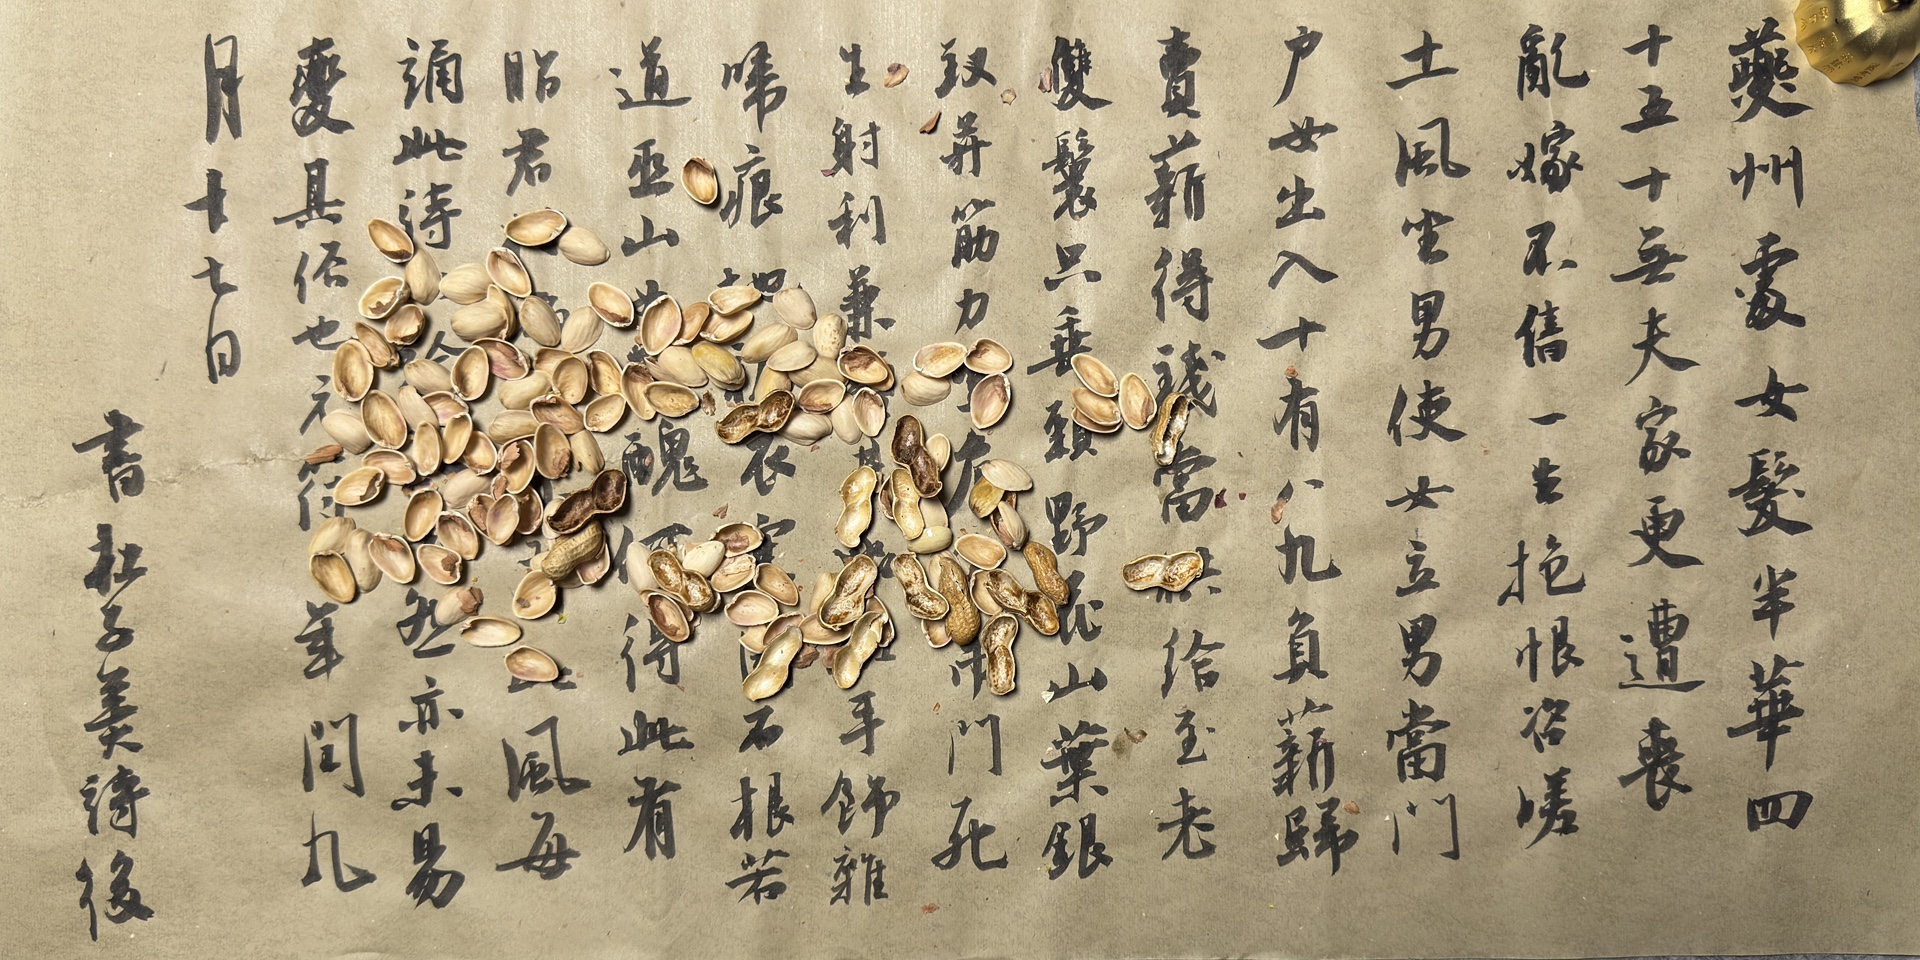 夔州處女髮半華四
十五十無夫家更遭喪
亂嫁不售一生抱恨咨嗟
土風坐男使女立男當門
户女出入十有八九負薪歸
賣薪得錢當供給至老
雙鬟只垂頸野花山葉銀
釵并筋力危市門死
生射利兼手飾雜
啼痕衣寒石根若
道巫山醜何得此有
昭君風每
誦此詩然亦未易
變其俗也元符年閏九
月十七日
書杜子美詩後